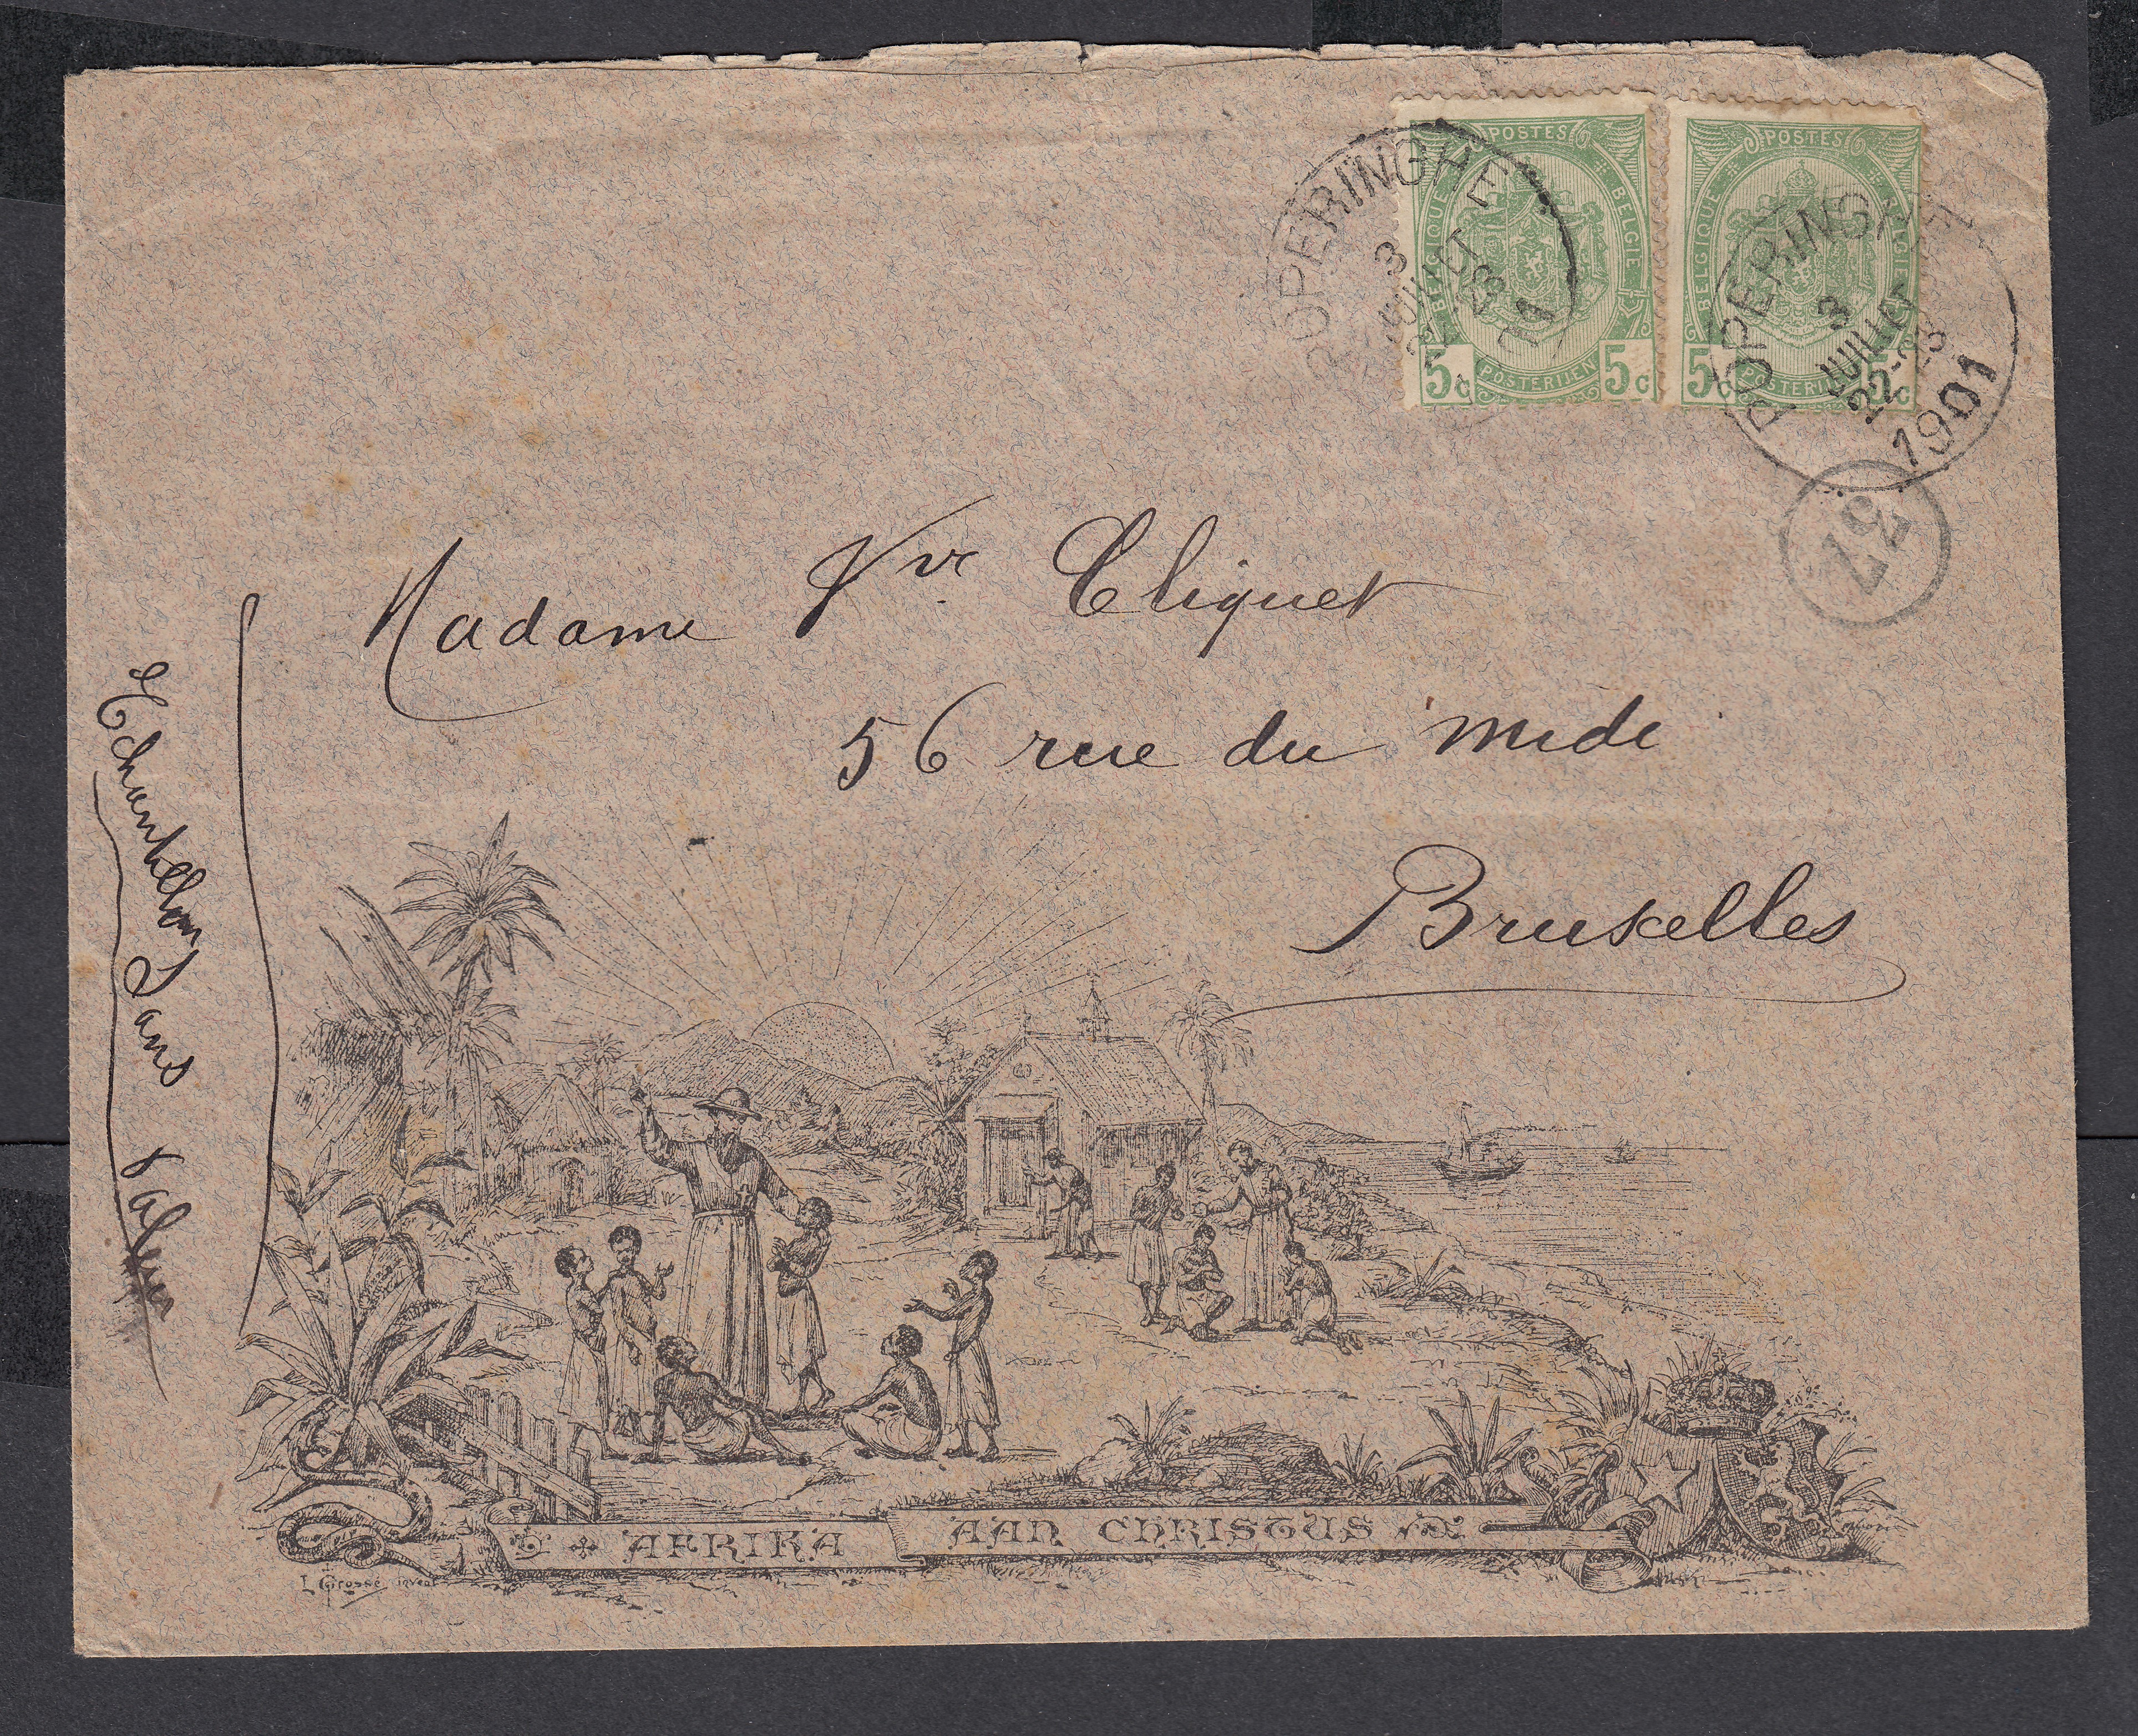 POSTES
BELGIQUE
BELGIE
5c
POSTERIJEN
5c
POSTES
BELGIQUE
BELGIE
5c
POSTERIJEN
5c
POPERINGHE
3
JUILLET
22-23
1901
POPERINGHE
3
JUILLET
22-23
1901
37
Madame Vve Cliquet
56 rue du midi
Bruxelles
Echantillon Sans Valeur
AFRIKA AAN CHRISTUS